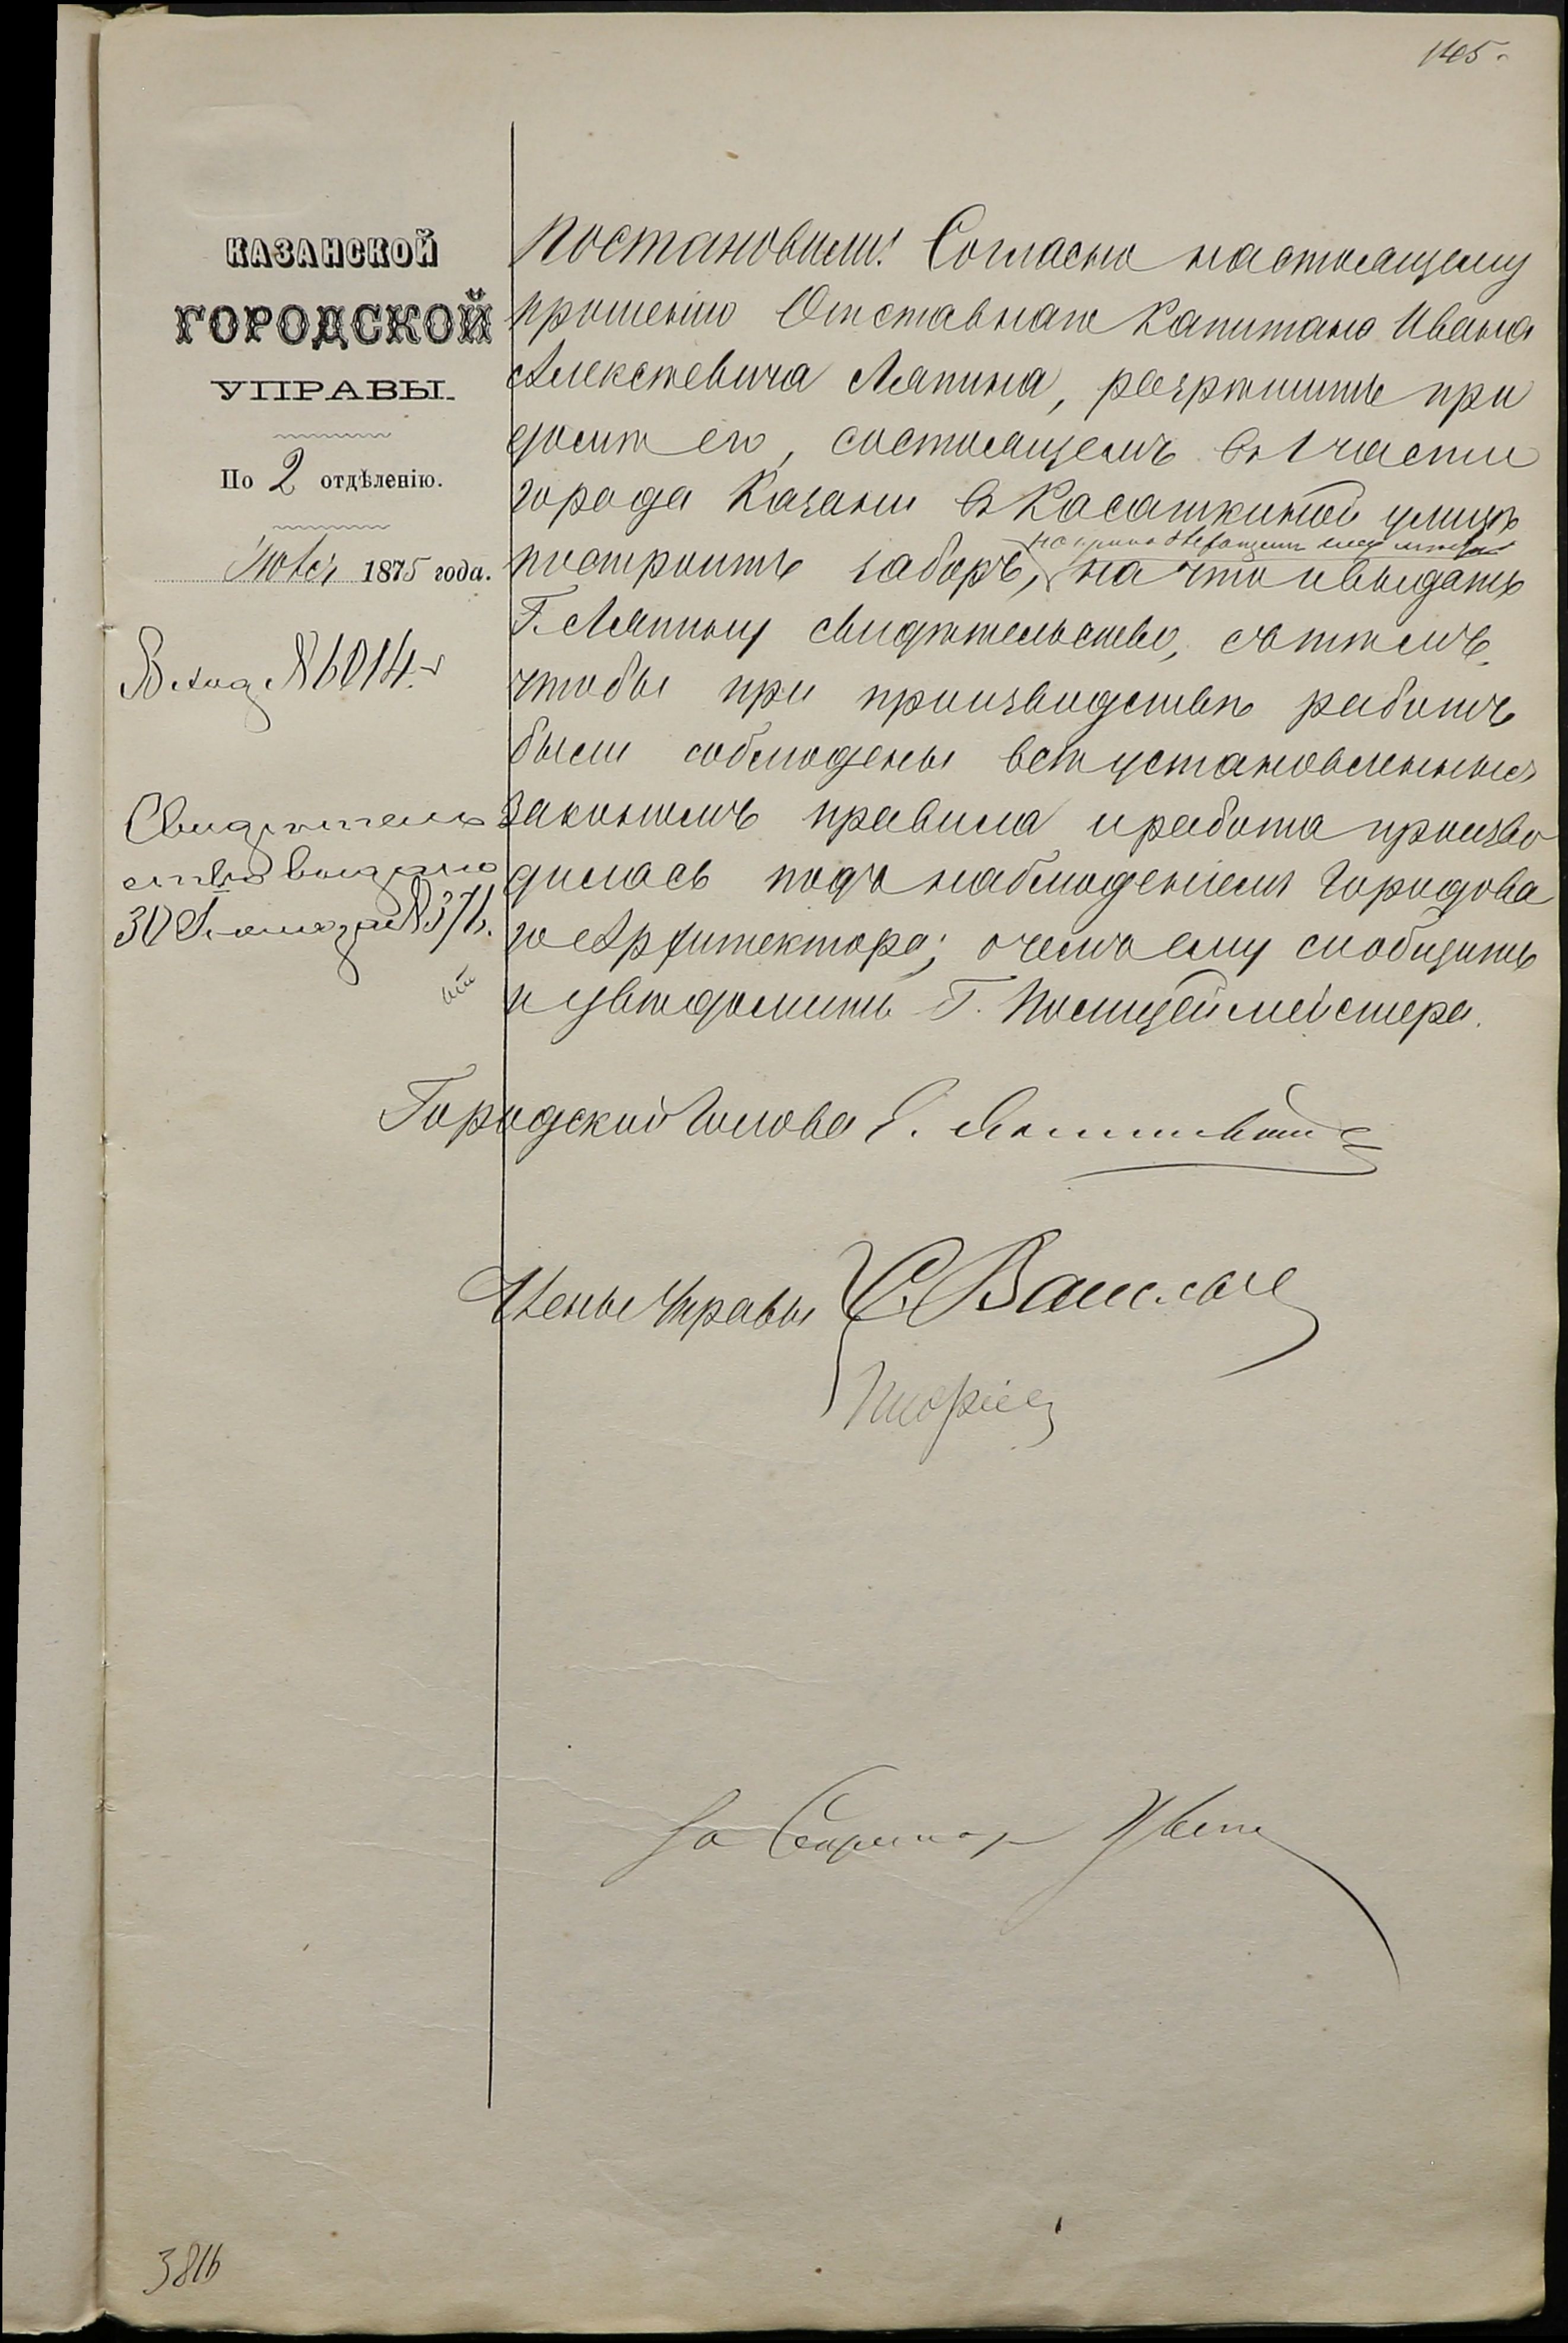 145.
КАЗАНСКОЙ
ГОРОДСКОЙ
УПРАВЫ.
По 2 отдѣленію.
1875 года.
Вход. № 6014.
Свидѣтель
ство выдано
30 № 371.
Постановили: Согласно настоящему
прошенію Отставнаго Капитана Ивана
Алексѣевича Ляпина, разрѣшить при
домѣ его, состоящемъ въ 1 части
города Казани въ Касаткиной улицѣ
построить заборъ, на что и выдать
Г. Ляпину свидѣтельство, съ тѣмъ,
чтобы при производствѣ работъ
были соблюдены всѣ установленныя
закономъ правила и работа произво
дилась подъ наблюденіемъ Городова
го Архитектора; о чемъ ему сообщить
и увѣдомить Г. Полицеймейстера.
Городской Голова Е.
Члены Управы С.
За Секретаря
3816